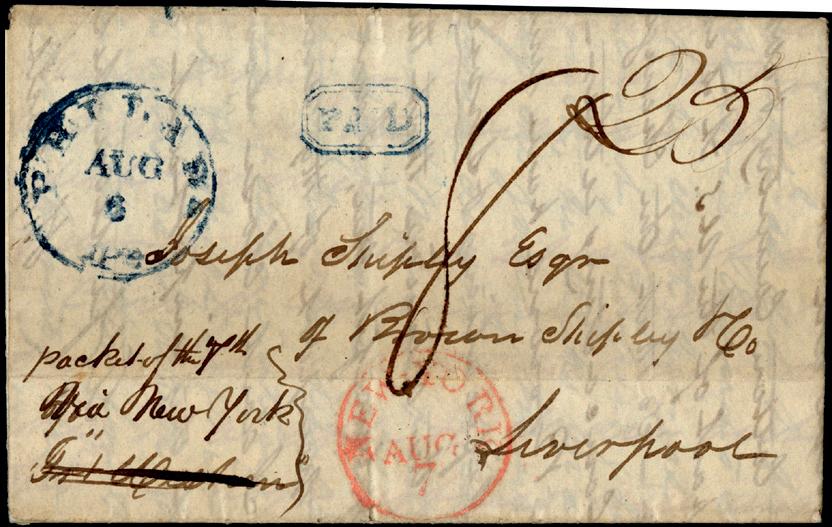 PHILADEL
AUG
6
Pa
PAID
25
Joseph Shipley Esqr
of Brown Shipley & Co
Liverpool
packet of the 7th
Via New York
NEW-YORK
AUG
7